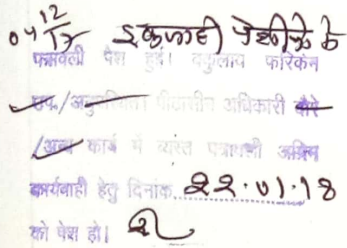 04/12/17
पत्रावली पेश हुई। वकुलाय फरिकेन
उप./अनुपस्थित। पीठासीन अधिकारी दौरे
/अन्य कार्य में व्यस्त पत्रावली अग्रिम
कार्यवाही हेतु दिनांक 22.01.18
को पेश हो।